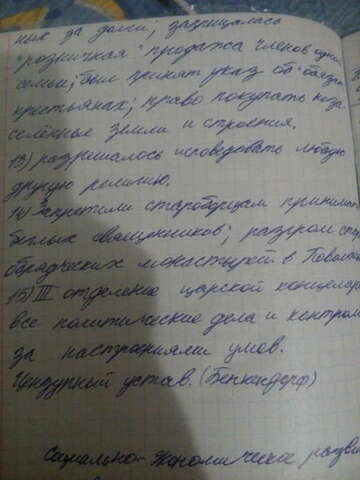 них за долги; запрещалась
"розничная" продажа членов одной
семьи; был принят указ об "обязан
крестьянах; право покупать неза-
селённые земли и строения.
13) разрешалось исповедовать любую
другую религию.
14) Запретили старобрядцам принимать
беглых священников; разгром ста
обрядческих монастырей в Поволж
15) III отделение царской канцеляр
все политические дела и контрол
за настроениями умов.
Цензурный устав. (Бенкендорф)
Социально-экономическое разви